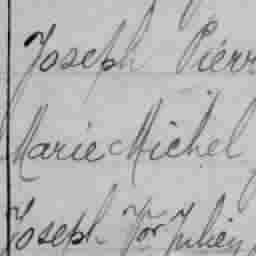 Joseph Pierr
Marie Michel
Joseph Julien